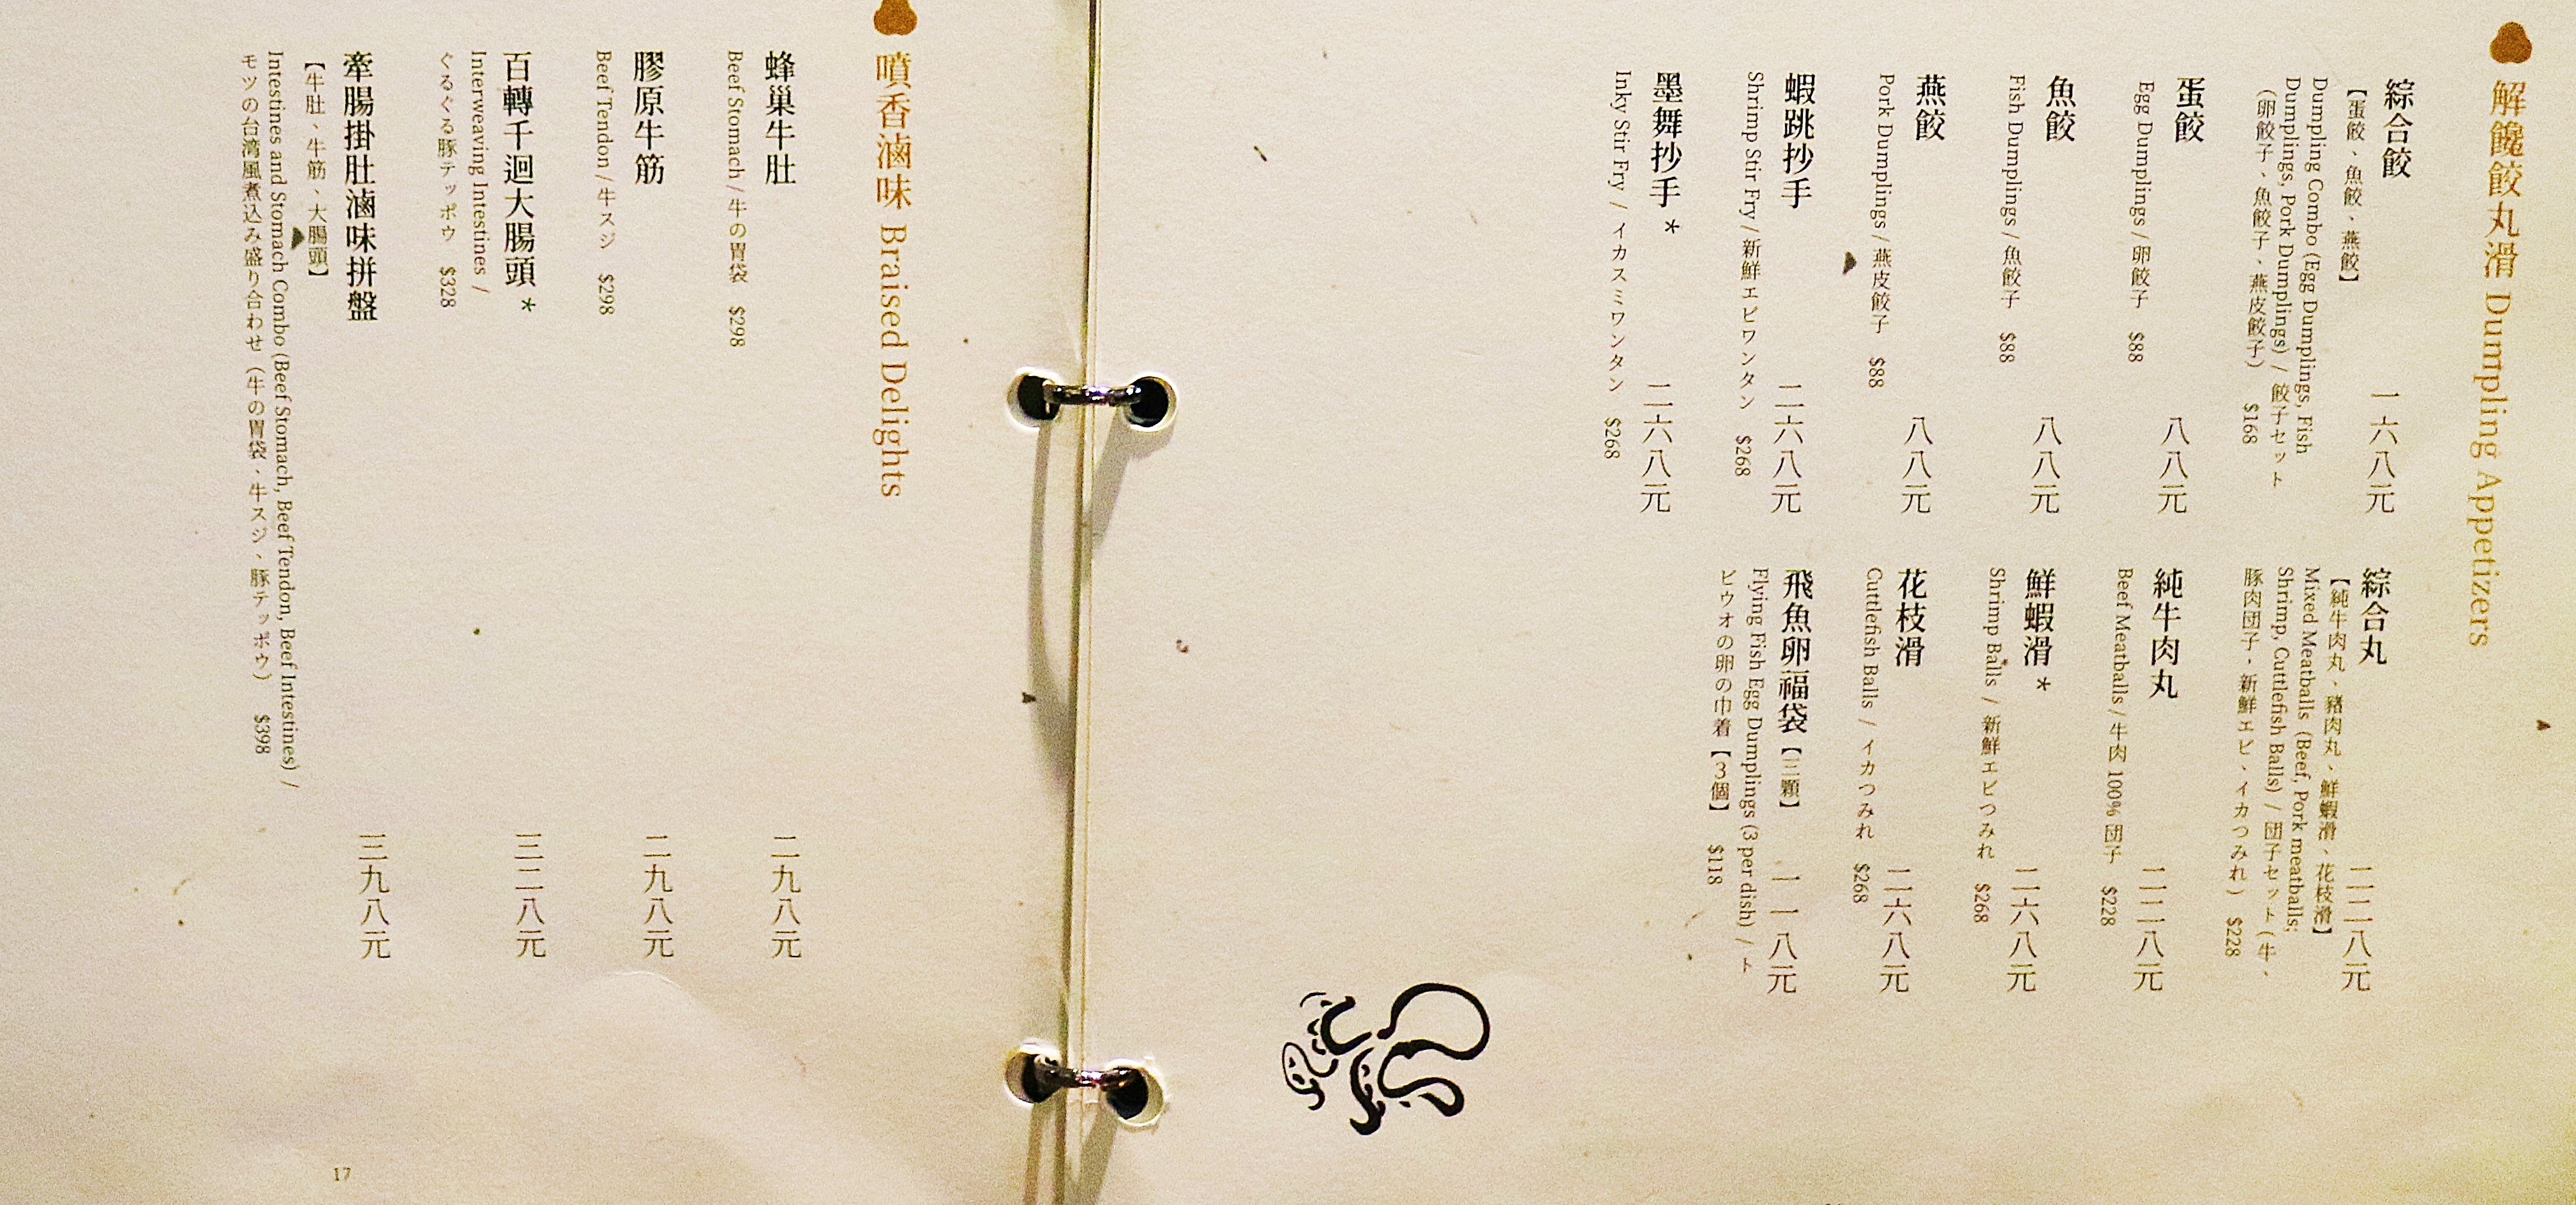 解饞餃丸滑 Dumpling Appetizers
綜合餃
一六八元
【蛋餃、魚餃、燕餃】
Dumpling Combo (Egg Dumplings, Fish
Dumplings, Pork Dumplings) / 餃子セット
(卵餃子、魚餃子、燕皮餃子) $168
蛋餃
八八元
Egg Dumplings / 卵餃子 $88
魚餃
八八元
Fish Dumplings / 魚餃子 $88
燕餃
八八元
Pork Dumplings / 燕皮餃子 $88
蝦跳抄手
二六八元
Shrimp Stir Fry / 新鮮エビワンタン $268
墨舞抄手 *
二六八元
Inky Stir Fry / イカスミワンタン $268
綜合丸
二二八元
【純牛肉丸、豬肉丸、鮮蝦滑、花枝滑】
Mixed Meatballs (Beef, Pork meatballs;
Shrimp, Cuttlefish Balls) / 団子セット (牛、
豚肉団子・新鮮エビ、イカつみれ) $228
純牛肉丸
二二八元
Beef Meatballs / 牛肉 100% 団子 $228
鮮蝦滑 *
二六八元
Shrimp Balls / 新鮮エビつみれ $268
花枝滑
二六八元
Cuttlefish Balls / イカつみれ $268
飛魚卵福袋【三顆】
一一八元
Flying Fish Egg Dumplings (3 per dish) / ト
ビウオの卵の巾着【3個】 $118
噴香滷味 Braised Delights
蜂巢牛肚
二九八元
Beef Stomach / 牛の胃袋 $298
膠原牛筋
二九八元
Beef Tendon / 牛スジ $298
百轉千迴大腸頭 *
三二八元
Interweaving Intestines /
ぐるぐる豚テッポウ $328
牽腸掛肚滷味拼盤
三九八元
【牛肚、牛筋、大腸頭】
Intestines and Stomach Combo (Beef Stomach, Beef Tendon, Beef Intestines) /
モツの台湾風煮込み盛り合わせ (牛の胃袋、牛スジ、豚テッポウ) $398
17